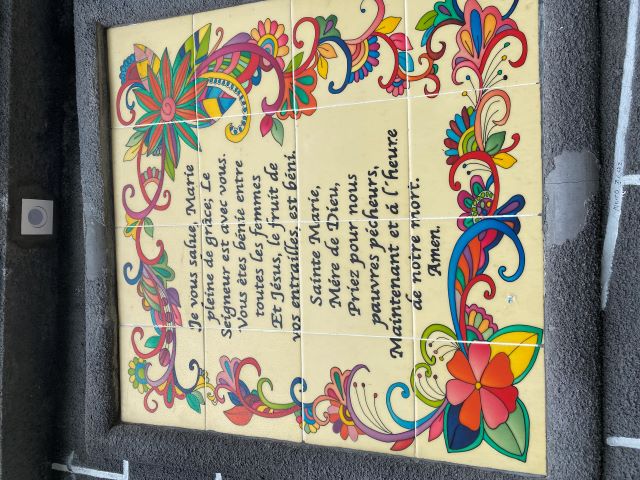 Je vous salue, Marie
pleine de grâce; Le
Seigneur est avec vous.
Vous êtes bénie entre
toutes les femmes
Et Jésus, le fruit de
vos entrailles, est béni.
Sainte Marie,
Mére de Dieu,
Priez pour nous
pauvres pécheurs,
Maintenant et á l´heure
de notre mort.
Amen.